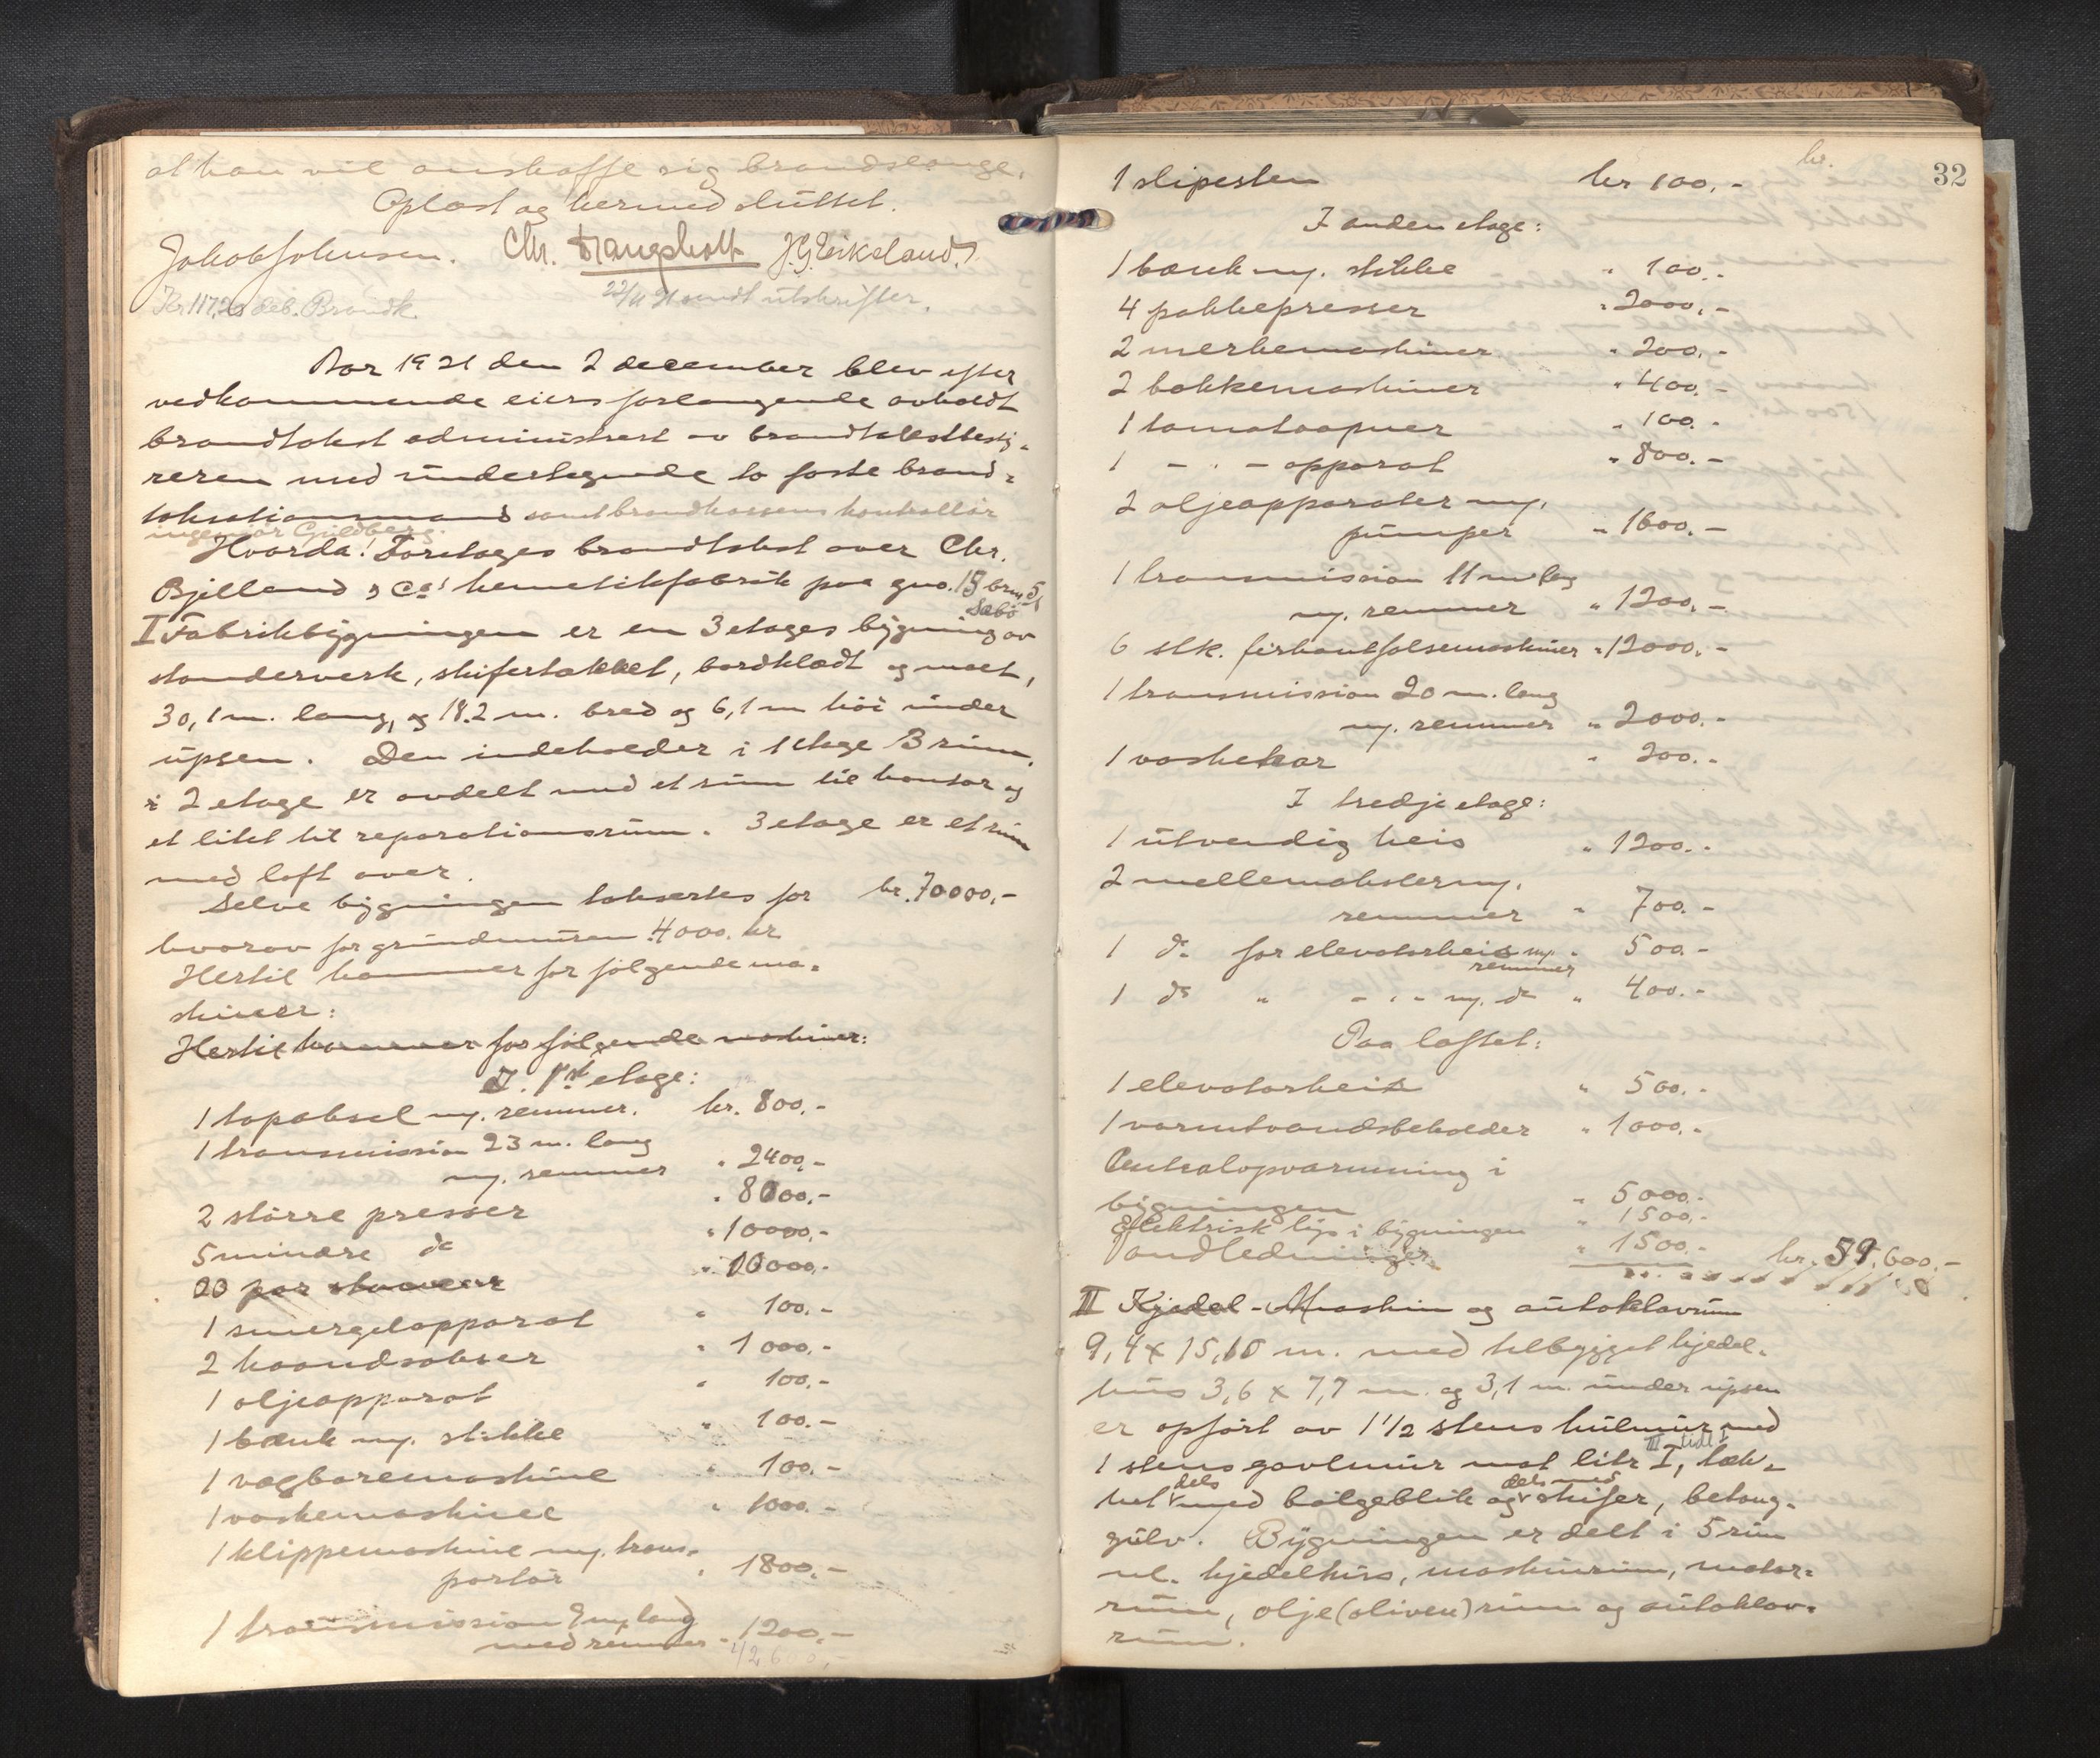 at han vil anskaffe sig brandslange.
Oplæst og hermed sluttet.
Jakob Johnsen. Chr. J.G. Eikeland
Kr 117,20 deb. Brandk. 22/11 21 sendt utskrifter.
Aar 1921 den 2 december blev efter
vedkommende eiers forlangende avholdt
brandtakst administrert av brandtakstbesty-
reren med undertegnede to faste brand-
taksationsmænd samt brandkassens kontrollør
ingeniør Guldberg.
Hvorda! Foretages brandtakst over Chr.
Bjelland & Co's hermetikfabrik paa gno. 15 brno 51
Sæbø
I Fabrikbygningen er en 3 etages bygning av
standerverk, skifertækket, bordklædt og malt,
30,1 m. lang, og 18.2 m. bred og 6,1 m høi under
upsen. Den indeholder i 1 etage 3 rum,
i 2 etage er avdelt med et rum til kontor og
et litet til reparationsrum. 3 etage er et rum
med loft over.
Selve bygningen taksertes for kr. 70000,-
hvorav for grundmuren 4000. kr
Hertil kommer for følgende ma-
skiner:
Hertil kommer for følgende maskiner:
I. 1ste etage:
1 topaksel m/. remmer. kr. 800,-
1 transmission 23 m. lang
m/. remmer " 2400,-
2 større presser " 8000,-
5 mindre do " 10000,-
20 par stanser " 10000,-
1 smergelapparat " 100,-
2 haandsakser " 1000,-
1 oljeapparat " 100,-
1 bænk m/. stikke " 100.-
1 vaskemaskine " 1000.-
1 klippemaskine m/. trans-
portør " 1800,-
1 transmission 9 m/ lang
med remmer " 1200,-
42600,-
kr.
32
1 slipesten kr 100.-
I anden etage:
1 bænk m/. stikke " 100.-
4 pakkepresser " 2000,-
2 merkemaskiner " 200.-
2 bakkemaskiner " 400.-
1 tomataapner " 100.-
1 - " - apparat " 800.-
2 oljeapparater m/.
pumper " 1600.-
1 transmission 11 m lang
m/. remmer " 1200.-
6 stk. firkantfalsemaskiner " 12000.-
1 transmission 20 m. lang
m/. remmer " 2000.-
1 vaskekar " 200.-
I tredje etage:
1 utvendig heis " 1200.-
2 mellemaksler m/.
remmer " 700.-
1 do for elevatorheis m/. " 500.-
remmer
1 do " - " - m/. do " 400.-
Paa loftet:
1 elevatorheis " 500.-
1 varmtvandsbeholder " 1000.-
Centralopvarmning i
bygningen " 5000.-
Elektrisk lys i bygningen " 1500.-
Vandledninger " 1500.- kr. 59.600.-
II Kjedel- Maskin og autoklavrum
9,4 x 15,10 m. med tilbygget kjedel-
hus 3,6 x 7,7 m. og 3,1 m. under upsen
er opført av 1 1/2 stens hulmur med
III tidl I
1 stens gavlmur mot litr I, tæk-
dels dels med
ket med bølgeblik og skifer, betong-
gulv. Bygningen er delt i 5 rum
nl. kjedelhus, maskinrum, motor-
rum, olje (oliven) rum og autoklav-
rum.